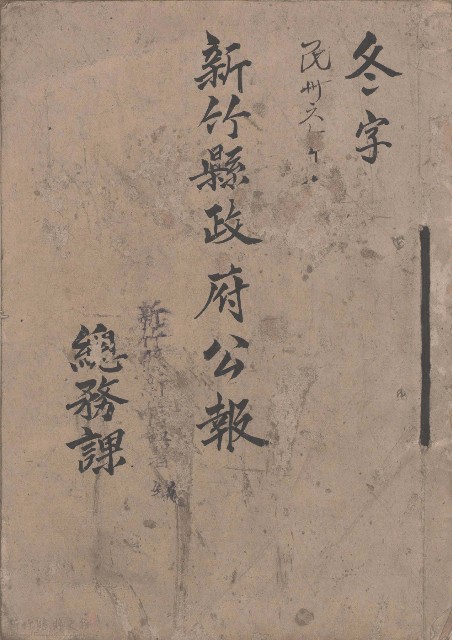 冬字
民卅六年
新竹縣政府公報
總務課